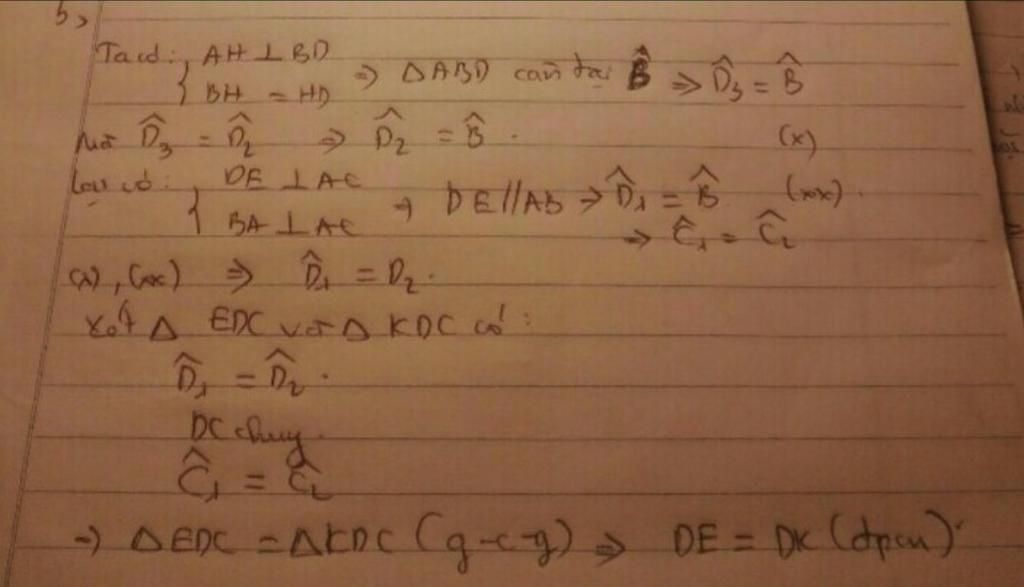 b,
Ta có: { AH ⊥ BD
BH = HD ⇒ ΔABD cân tại B̂ ⇒ D̂₃ = B̂
Mà D̂₃ = D̂₂ ⇒ D̂₂ = B̂ . (x)
Lại có: { DE ⊥ AC
BA ⊥ AC ⇒ DE // AB ⇒ D̂₁ = B̂ (xx).
⇒ Ĉ₁ = Ĉ₂
(x), (xx) ⇒ D̂₁ = D₂.
Xét Δ EDC với Δ KDC có:
D̂₁ = D̂₂ .
DC chung.
Ĉ₁ = Ĉ₂
⇒ ΔEDC = ΔKDC (g-c-g) ⇒ DE = DK (đpcm)